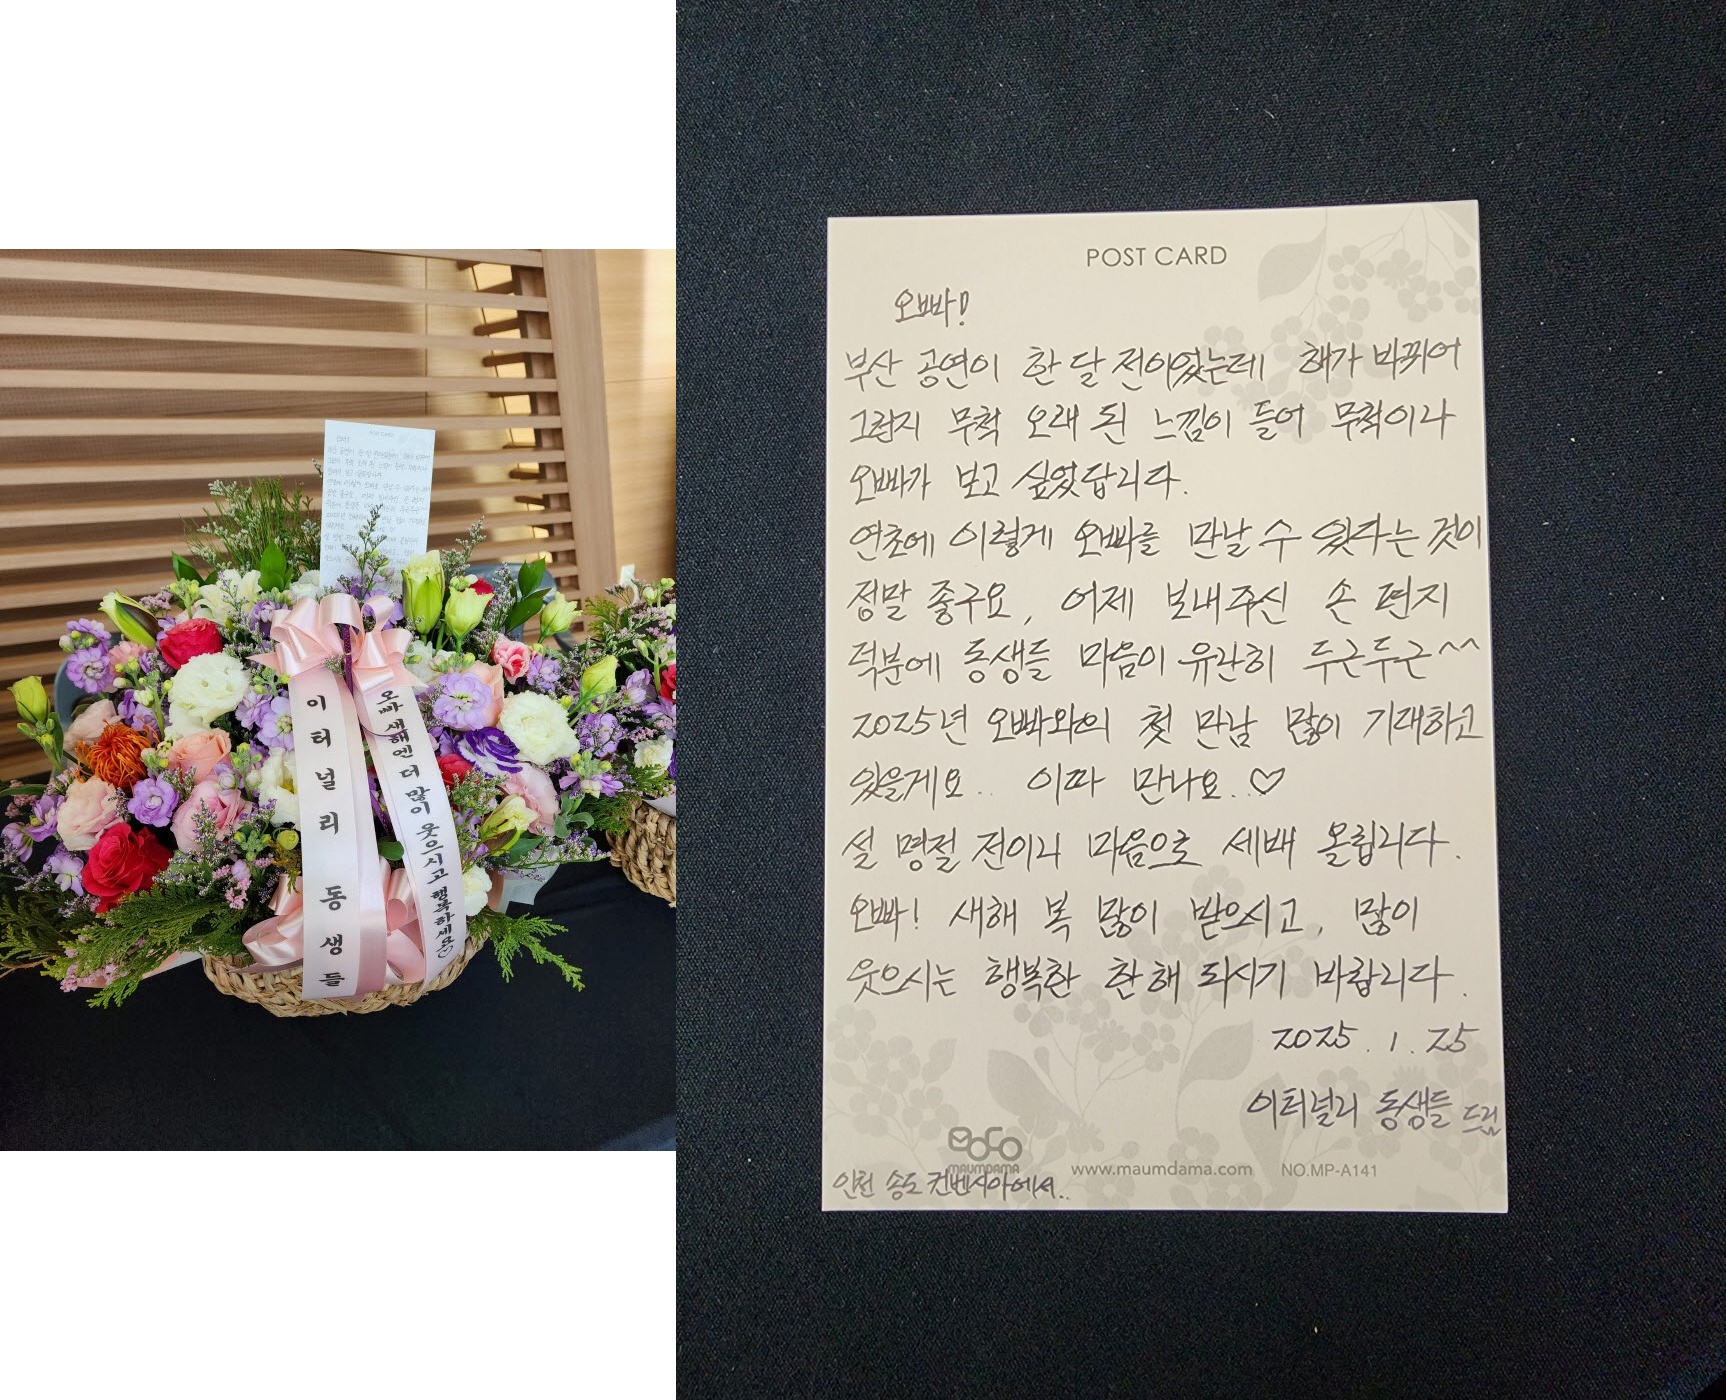 이터널리 동생들
오빠 새해엔 더 많이 웃으시고 행복하세요♡
POST CARD
오빠!
부산 공연이 한 달 전이었는데 해가 바뀌어
그런지 무척 오래 된 느낌이 들어 무척이나
오빠가 보고 싶었답니다.
연초에 이렇게 오빠를 만날 수 있다는 것이
정말 좋구요, 어제 보내주신 손 편지
덕분에 동생들 마음이 유난히 두근두근^^
2025년 오빠와의 첫 만남 많이 기대하고
있을게요.. 이따 만나요..♡
설 명절 전이니 마음으로 세배 올립니다.
오빠! 새해 복 많이 받으시고, 많이
웃으시는 행복한 한 해 되시기 바랍니다.
2025. 1. 25
이터널리 동생들 드림
MAUMDAMA www.maumdama.com NO.MP-A141
인천 송도 컨벤시아에서..